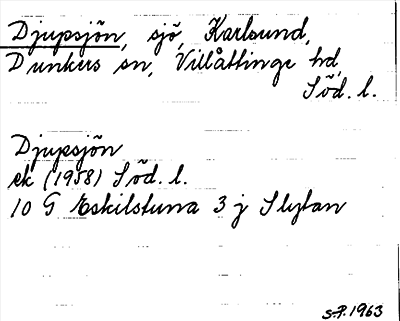 Djupsjön, sjö, Karlsund,
Dunkers sn, Villåttinge hd,
Söd. l.
Djupsjön
ek (1958) Söd. l.
10 G Eskilstuna 3 j Slytan
S.P. 1963